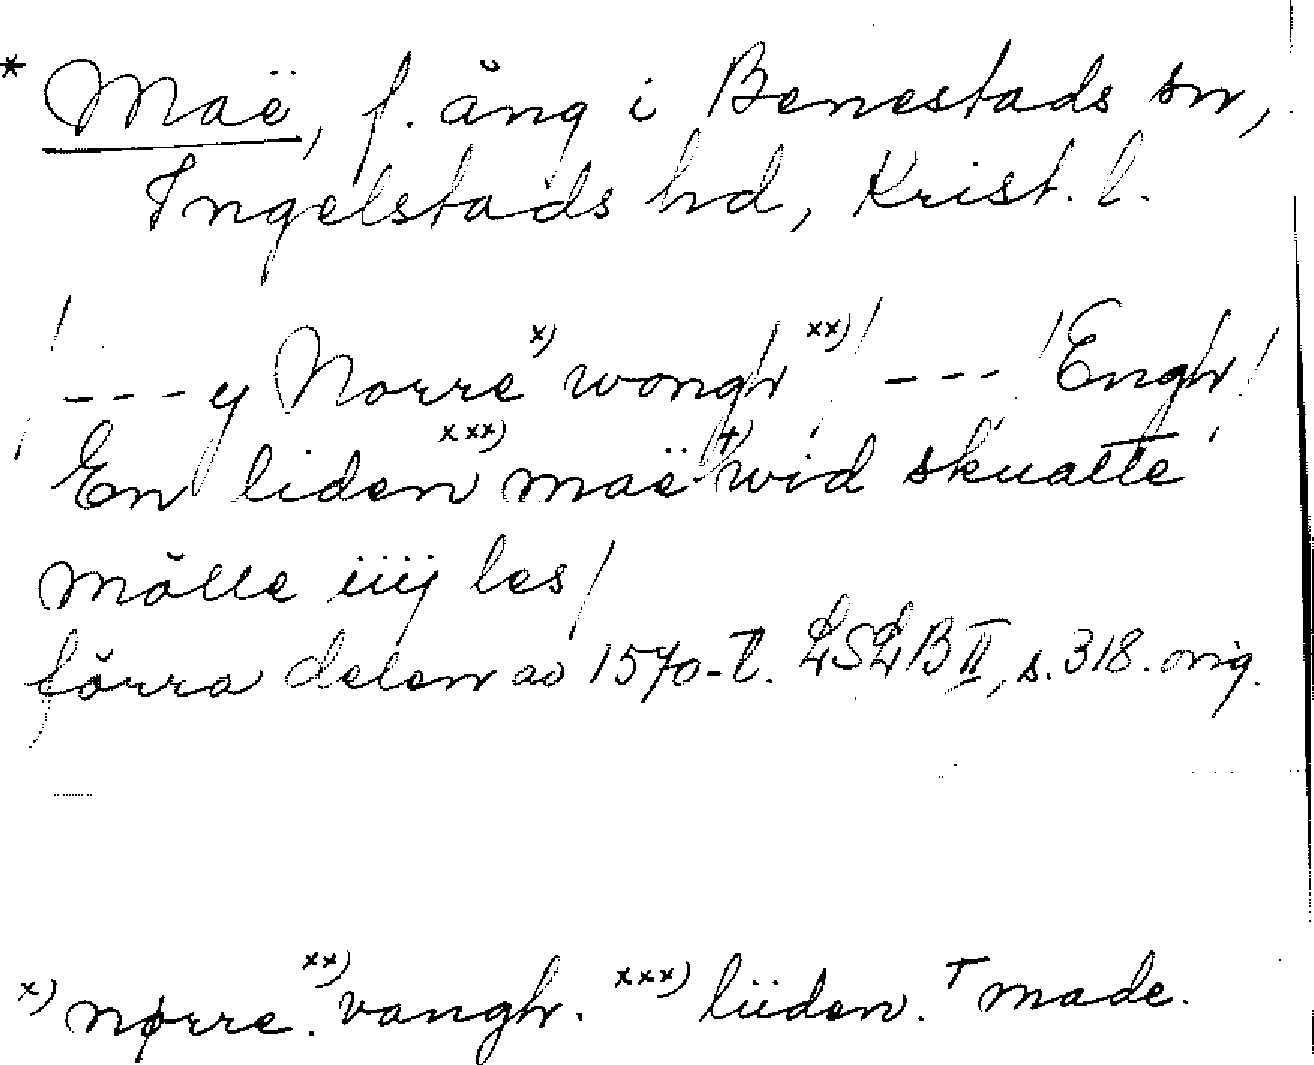 * Maë, f. äng i Benestads sn,
Ingelstads hd, Krist. l.
/ --- y Norre x) wongh xx) / --- / Engh /
En liden xxx) maë +) wid skuatte
mölle iiij les /
förra delen av 1570-t. LSLB II, s. 318. orig.
x) nørre. xx) vangh. xxx) liiden. + made.